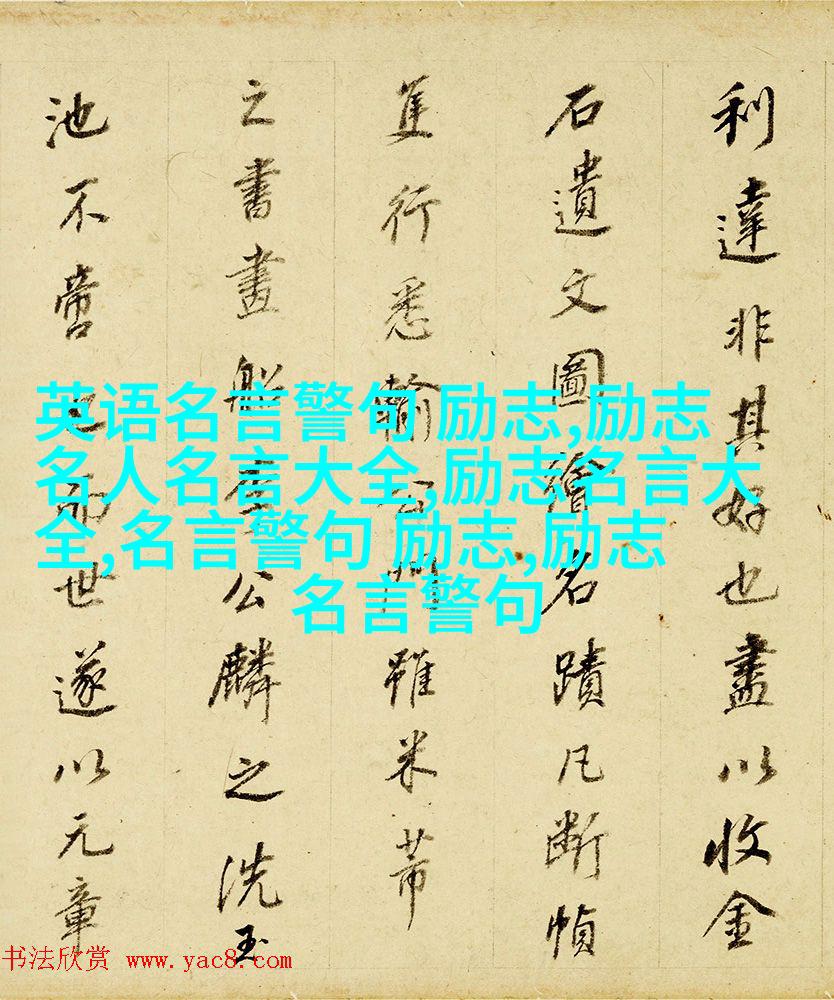 利達非其好也盡以收金
石遺文圖繪名蹟凡斷幀
隻行悉輸公門雖米芾
之書畫船李公麟之洗玉
池不啻也而世遂以元章
英语名言警句 励志,励志
名人名言大全,励志名言大
全,名言警句 励志,励志
名言警句
书法欣赏 www.yac8.com